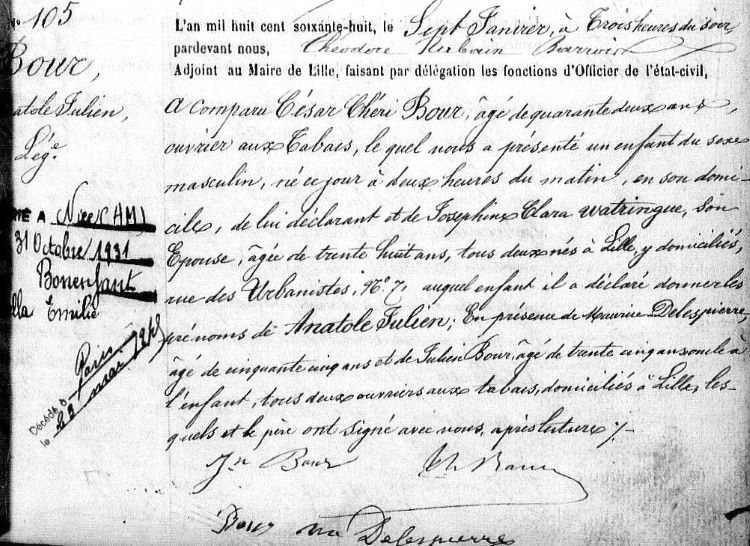 No 105
Bour,
atole Julien,
Lég.e
IÉ A Nice (AM)
31 Octobre 1931
Bonenfant
lla Emilie
Décédé à Paris
le 29 mai 1948
L'an mil huit cent soixante-huit, le Sept Janvier, à Trois heures du soir
pardevant nous, Théodore Urbain Barrois
Adjoint au Maire de Lille, faisant par délégation les fonctions d'Officier de l'état-civil,
A comparu César Chéri Bour, âgé de quarante deux ans,
ouvrier aux Tabacs, le quel nous a présenté un enfant du sexe
masculin, né ce jour à deux heures du matin, en son domi-
cile, de lui déclarant et de Joséphine Clara Watringue, Son
Epouse, âgée de trente huit ans, tous deux nés à Lille, y domiciliés,
rue des Urbanistes, No 7, auquel enfant il a déclaré donner les
prénoms de Anatole Julien; En présence de Maurice Delespierre,
âgé de cinquante cinq ans et de Julien Bour, âgé de trente cinq ans oncle à
l'enfant, tous deux ouvriers aux tabacs, domiciliés à Lille, les-
quels et le père ont signé avec nous, après lecture ./.
Jn Bour
Bour
Delespierre